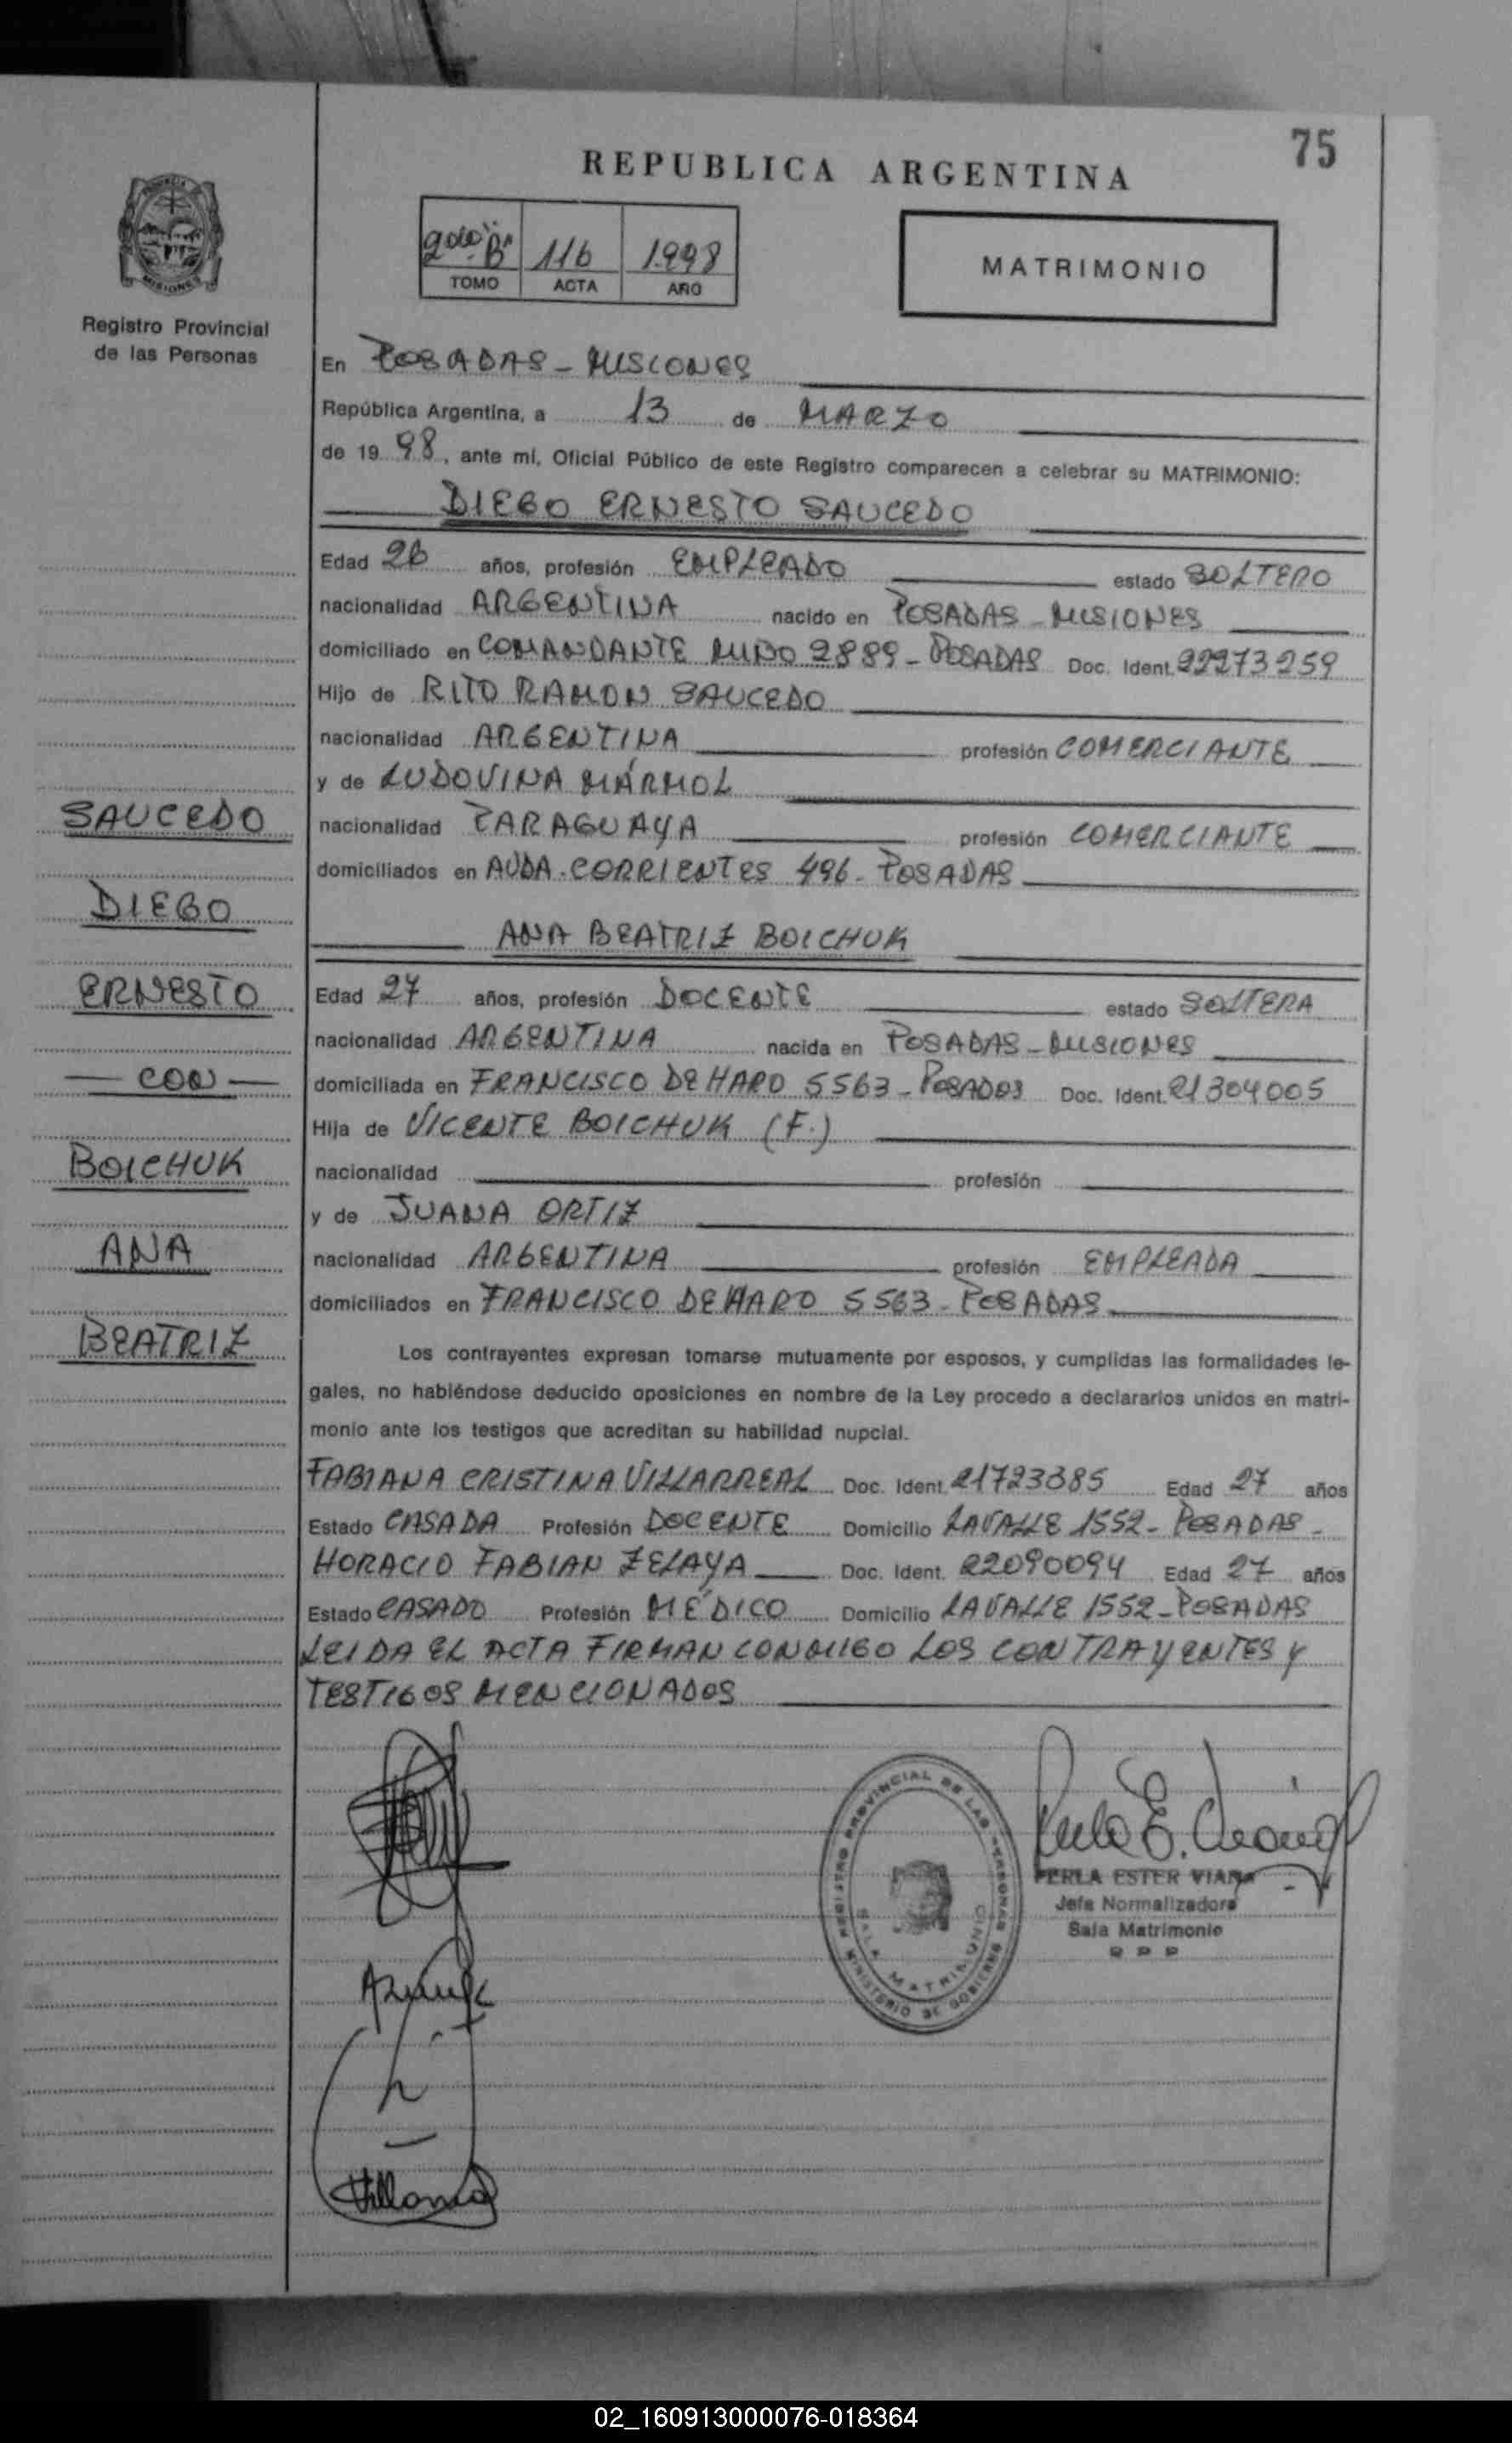 75
REPUBLICA ARGENTINA
116 1998
TOMO ACTA AÑO
MATRIMONIO
MISIONES
Registro Provincial
de las Personas
En POSADAS - MISIONES
República Argentina, a 13 de MARZO
de 19 98, ante mí, Oficial Público de este Registro comparecen a celebrar su MATRIMONIO:
DIEGO ERNESTO SAUCEDO
Edad 26 años, profesión EMPLEADO estado SOLTERO
nacionalidad ARGENTINA nacido en POSADAS - MISIONES
domiciliado en COMANDANTE MIÑO 2889 - POSADAS Doc. Ident. 22273259
Hijo de RITO RAMON SAUCEDO
nacionalidad ARGENTINA profesión COMERCIANTE
y de LUDOVINA MÁRMOL
SAUCEDO
nacionalidad PARAGUAYA profesión COMERCIANTE
domiciliados en AVDA. CORRIENTES 496 - POSADAS
DIEGO
ANA BEATRIZ BOICHUK
ERNESTO
Edad 27 años, profesión DOCENTE estado SOLTERA
nacionalidad ARGENTINA nacida en POSADAS - MISIONES
— CON —
domiciliada en FRANCISCO DE HARO 5563 - POSADAS Doc. Ident. 21304005
Hija de VICENTE BOICHUK (F.)
BOICHUK
nacionalidad profesión
y de JUANA ORTIZ
ANA
nacionalidad ARGENTINA profesión EMPLEADA
domiciliados en FRANCISCO DE HARO 5563 - POSADAS
BEATRIZ
Los contrayentes expresan tomarse mutuamente por esposos, y cumplidas las formalidades le-
gales, no habiéndose deducido oposiciones en nombre de la Ley procedo a declararlos unidos en matri-
monio ante los testigos que acreditan su habilidad nupcial.
FABIANA CRISTINA VILLARREAL Doc. Ident. 21723385 Edad 27 años
Estado CASADA Profesión DOCENTE Domicilio LAVALLE 1552 - POSADAS -
HORACIO FABIAN ZELAYA Doc. Ident. 22090094 Edad 27 años
Estado CASADO Profesión MÉDICO Domicilio LAVALLE 1552 - POSADAS
LEIDA EL ACTA FIRMAN CONMIGO LOS CONTRAYENTES Y
TESTIGOS MENCIONADOS
REGISTRO PROVINCIAL DE LAS PERSONAS
SALA MATRIMONIO
MINISTERIO DE GOBIERNO
PERLA ESTER VIANA
Jefe Normalizadora
Sala Matrimonio
02_160913000076-018364